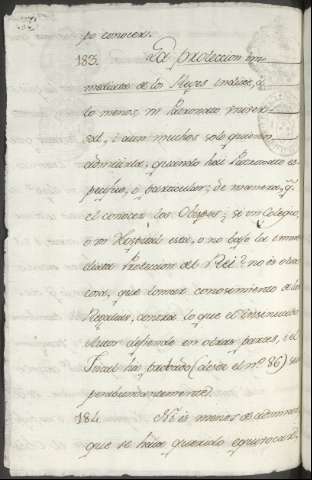 po conocer.
183. La proteccion im
mediata de los Reyes induce, á
lo menos, un Patronato univer
sal, i aun muchos solo quieren
admitirla, quando hai Patronato es
pecifico, o particular; de manera, q.
el conocer los Obispos; si un Colegio,
o un Hospital está, o no bajo la imme
diata Proteccion del Rei? no es otra
cosa, que tomar conocimiento de las
Regalias, contra lo que el
Autor defiende en otras partes, i el
Fiscal ha tratado (desde el nº 86) su
perabundantemente.
184. No es menos de admirar
que se haia querido equivocar